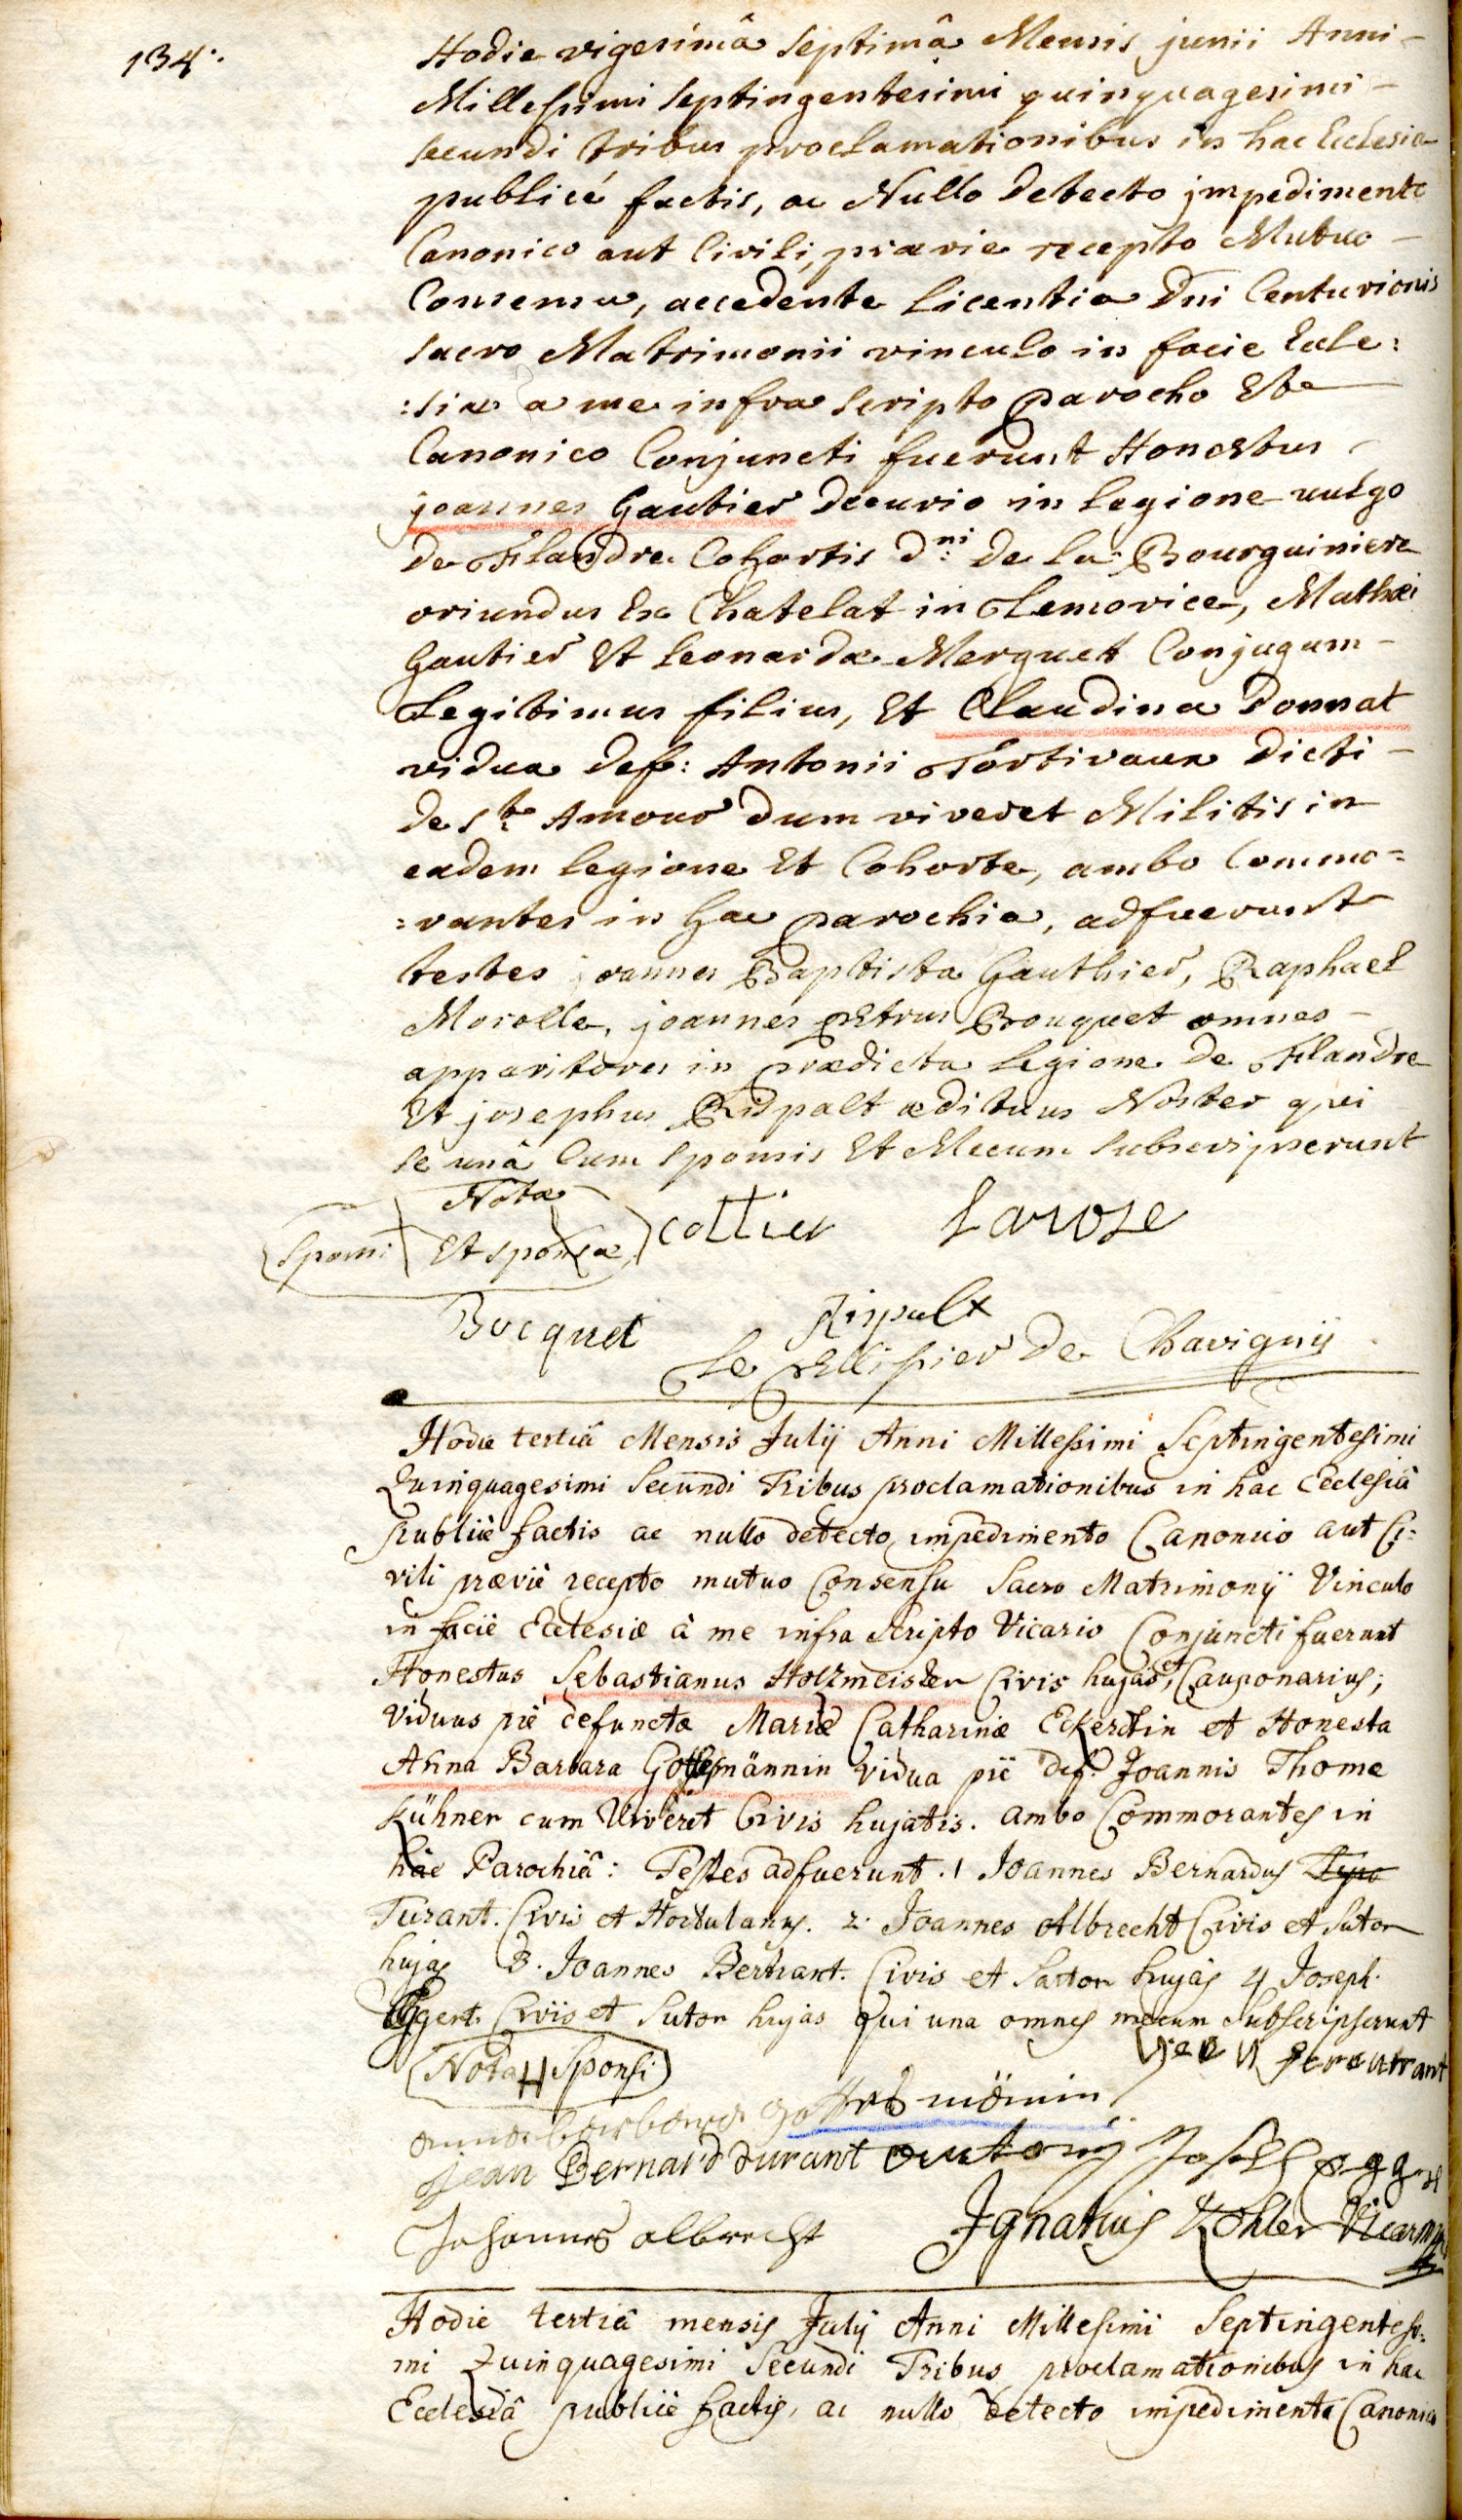 134.
Hodie vigesimâ septimâ Mensis junii Anni -
Millessimi septingentesimi quinquagesimi -
secundi tribus proclamationibus in hac Ecclesia
publicé factis, ac Nullo detecto jmpedimento
Canonico aut Civili, prævie recepto Mutuo -
Consensu, accedente licentia Dni Centurionis
sacro Matrimonii vinculo in facie Eccle:
:siæ a me infra scripto parocho Et
Canonico Conjuncti fuerunt Honestus
joannes Gautier decurio in legione vulgo
de Flandre Cohortis d:ni de la Bourguiniere
oriundus Ex Chatelat in Lemovice, Mathæi
Gautier Et Leonardæ Merguett Conjugum -
Legitimus filius, Et Claudina Donnat
vidua def: Antonii Tortivaux dicti -
de ste Amour dum viveret Militis in
eadem legione Et Cohorte, ambo Commo=
=rantes in hac parochia, adfuerunt
testes joannes Baptista Gauthier, Raphael
Morolle, joannes pEtrus Bouquet omnes -
apparitores in prædicta legione de Flandre
Et josephus Rispalt ædituus Noster qui
se unâ Cum sponsis Et Mecum subscripserunt
Nota
sponsi Et sponsæ cottier Larose
Bocquet Rispalt
Le pEllissier de Chavignij
Hodie tertiâ Mensis Julij Anni Millessimi Septingentesimi
Quinquagesimi Secundi Tribus proclamationibus in hac Ecclesiâ
Publicè factis ac nullo detecto impedimento Canonico aut Ci:
vili prævie recepto mutuo Consensu Sacro Matrimonij Vinculo
in facie Ecclesiæ à me infra scripto Vicario Conjuncti fuerunt
Honestus Sebastianus Holtzmeister Civis hujas, et Cauponarius;
Viduus piè defunctæ Mariæ Catharinæ Eckertin et Honesta
Anna Barbara Gottesmännin Vidua piè def. Joannis Thome
Kühner cum Viveret Civis hujatis. ambo Commorantes in
hâc Parochiâ: Testes adfuerunt. 1 Joannes Bernardus
Turant. Civis et Hortulanus. 2. Joannes Albrecht Civis et Sutor
hujas 3. Joannes Bertrant. Civis et Sartor hujas 4 Joseph.
Eggert. Civis et Sutor hujas Qui una omnes mecum Subscripserunt
Nota H Sponsi
anna barbara gottesmänin
Jean Bernard durant Joseph egger
Johannes albrecht Ignatius Kohler Vicarius
Hodie tertiâ mensis Julij Anni Millesimi Septingentesi:
mi Quinquagesimi Secundi Tribus proclamationibus in hac
Ecclesiâ publicè factis, ac nullo detecto impedimento Canonico